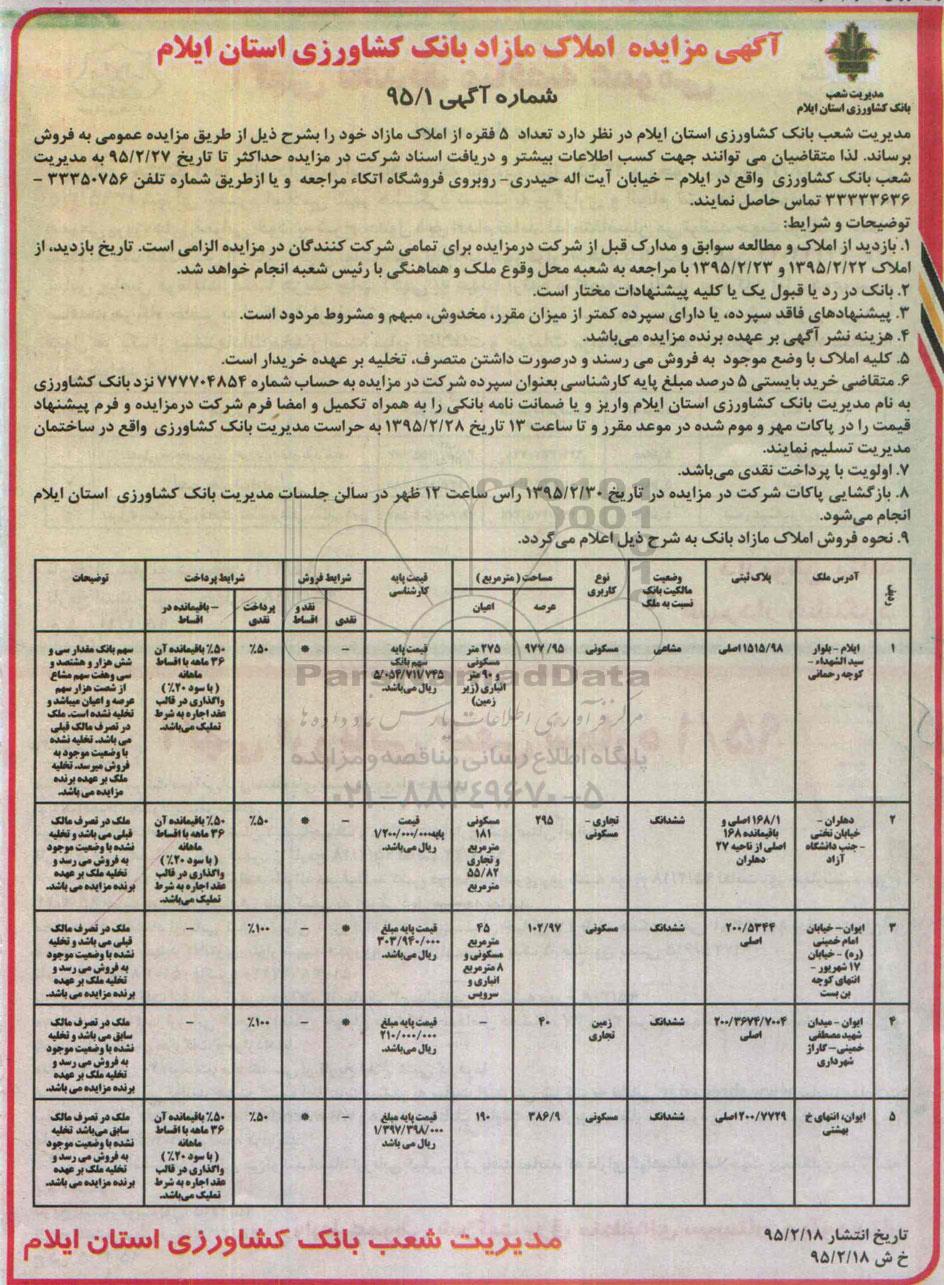 آگهی مزایده املاک مازاد بانک کشاورزی استان ایلام
مدیریت شعب
بانک کشاورزی استان ایلام
شماره آگهی ۹۵/۱
مدیریت شعب بانک کشاورزی استان ایلام در نظر دارد تعداد ۵ فقره از املاک مازاد خود را بشرح ذیل از طریق مزایده عمومی به فروش
برساند. لذا متقاضیان می توانند جهت کسب اطلاعات بیشتر و دریافت اسناد شرکت در مزایده حداکثر تا تاریخ ۹۵/۲/۲۷ به مدیریت
شعب بانک کشاورزی واقع در ایلام – خیابان آیت اله حیدری– روبروی فروشگاه اتکاء مراجعه و یا ازطریق شماره تلفن ۳۳۳۵۰۷۵۶ –
۳۳۳۳۳۶۳۶ تماس حاصل نمایند.
توضیحات و شرایط:
۱. بازدید از املاک و مطالعه سوابق و مدارک قبل از شرکت درمزایده برای تمامی شرکت کنندگان در مزایده الزامی است. تاریخ بازدید، از
املاک ۱۳۹۵/۲/۲۲ و ۱۳۹۵/۲/۲۳ با مراجعه به شعبه محل وقوع ملک و هماهنگی با رئیس شعبه انجام خواهد شد.
۲. بانک در رد یا قبول یک یا کلیه پیشنهادات مختار است.
۳. پیشنهادهای فاقد سپرده، یا دارای سپرده کمتر از میزان مقرر، مخدوش، مبهم و مشروط مردود است.
۴. هزینه نشر آگهی بر عهده برنده مزایده می‌باشد.
۵. کلیه املاک با وضع موجود به فروش می رسند و درصورت داشتن متصرف، تخلیه بر عهده خریدار است.
۶. متقاضی خرید بایستی ۵ درصد مبلغ پایه کارشناسی بعنوان سپرده شرکت در مزایده به حساب شماره ۷۷۷۷۰۴۸۵۴ نزد بانک کشاورزی
به نام مدیریت بانک کشاورزی استان ایلام واریز و یا ضمانت نامه بانکی را به همراه تکمیل و امضا فرم شرکت درمزایده و فرم پیشنهاد
قیمت را در پاکات مهر و موم شده در موعد مقرر و تا ساعت ۱۳ تاریخ ۱۳۹۵/۲/۲۸ به حراست مدیریت بانک کشاورزی واقع در ساختمان
مدیریت تسلیم نمایند.
۷. اولویت با پرداخت نقدی می‌باشد.
۸. بازگشایی پاکات شرکت در مزایده در تاریخ ۱۳۹۵/۲/۳۰ راس ساعت ۱۲ ظهر در سالن جلسات مدیریت بانک کشاورزی استان ایلام
انجام می‌شود.
۹. نحوه فروش املاک مازاد بانک به شرح ذیل اعلام می‌گردد.
ردیف
آدرس ملک
پلاک ثبتی
وضعیت
مالکیت بانک
نسبت به ملک
نوع
کاربری
مساحت ( مترمربع )
عرصه
اعیان
قیمت پایه
کارشناسی
شرایط فروش
نقدی
نقد و
اقساط
شرایط پرداخت
پرداخت
نقدی
– باقیمانده در
اقساط
توضیحات
۱
ایلام – بلوار
سید الشهداء –
کوچه رحمانی
۱۵۱۵/۹۸ اصلی
مشاعی
مسکونی
۹۷۷/۹۵
۲۷۵ متر
مسکونی
و ۹۰ متر
انباری (زیر
زمین)
قیمت پایه
سهم بانک
۵/۰۵۴/۷۱۱/۷۴۵
ریال می‌باشد.
–
*
۵۰٪
۵۰٪ باقیمانده آن
۳۶ ماهه با اقساط
ماهانه
( با سود ۲۰٪ )
واگذاری در قالب
عقد اجاره به شرط
تملیک می‌باشد.
سهم بانک مقدار سی و
شش هزار و هشتصد و
سی وهفت سهم مشاع
از شصت هزار سهم
عرصه و اعیان میباشد و
تخلیه نشده است. ملک
در تصرف مالک قبلی
می باشد. تخلیه نشده
با وضعیت موجود به
فروش میرسد. تخلیه
ملک بر عهده برنده
مزایده می باشد.
۲
دهلران –
خیابان تختی
– جنب دانشگاه
آزاد
۱۶۸/۱ اصلی و
باقیمانده ۱۶۸
اصلی از ناحیه ۲۷
دهلران
ششدانگ
تجاری –
مسکونی
۲۹۵
مسکونی
۱۸۱
مترمربع
و تجاری
۵۵/۸۲
مترمربع
قیمت
پایه۱/۲۰۰/۰۰۰/۰۰۰
ریال می‌باشد.
–
*
۵۰٪
۵۰٪ باقیمانده آن
۳۶ ماهه با اقساط
ماهانه
( با سود ۲۰٪ )
واگذاری در قالب
عقد اجاره به شرط
تملیک می‌باشد.
ملک در تصرف مالک
قبلی می باشد و تخلیه
نشده با وضعیت موجود
به فروش می رسد و
تخلیه ملک بر عهده
برنده مزایده می باشد.
۳
ایوان– خیابان
امام خمینی
(ره) – خیابان
۱۷ شهریور –
انتهای کوچه
بن بست
۲۰۰/۵۳۴۴
اصلی
ششدانگ
مسکونی
۱۰۲/۹۷
۴۵
مترمربع
مسکونی و
۸ مترمربع
انباری و
سرویس
قیمت پایه مبلغ
۳۰۳/۹۴۰/۰۰۰
ریال می‌باشد.
*
–
۱۰۰٪
–
ملک در تصرف مالک
قبلی می باشد و تخلیه
نشده با وضعیت موجود
به فروش می رسد و
تخلیه ملک بر عهده
برنده مزایده می باشد.
۴
ایوان – میدان
شهید مصطفی
خمینی– گاراژ
شهرداری
۲۰۰/۳۶۷۴/۷۰۰۴
اصلی
ششدانگ
زمین
تجاری
۴۰
–
قیمت پایه مبلغ
۲۱۰/۰۰۰/۰۰۰
ریال می‌باشد.
*
–
۱۰۰٪
–
ملک در تصرف مالک
سابق می باشد و تخلیه
نشده با وضعیت موجود
به فروش می رسد و
تخلیه ملک بر عهده
برنده مزایده می باشد.
۵
ایوان، انتهای خ
بهشتی
۲۰۰/۷۷۲۹ اصلی
ششدانگ
مسکونی
۳۸۶/۹
۱۹۰
قیمت پایه مبلغ
۱/۳۹۷/۳۹۸/۰۰۰
ریال می باشد
–
*
۵۰٪
۵۰٪ باقیمانده آن
۳۶ ماهه با اقساط
ماهانه
( با سود ۲۰٪ )
واگذاری در قالب
عقد اجاره به شرط
تملیک می‌باشد.
ملک در تصرف مالک
سابق می‌باشد تخلیه
نشده با وضعیت موجود
به فروش می رسد و
تخلیه ملک بر عهده
برنده مزایده می باشد.
ParsNamadData
مرکز فرآوری اطلاعات پارس نماد داده ها
پایگاه اطلاع رسانی مناقصه و مزایده
۰۲۱–۸۸۳۴۹۶۷۰–۵
تاریخ انتشار ۹۵/۲/۱۸
خ ش ۹۵/۲/۱۸
مدیریت شعب بانک کشاورزی استان ایلام